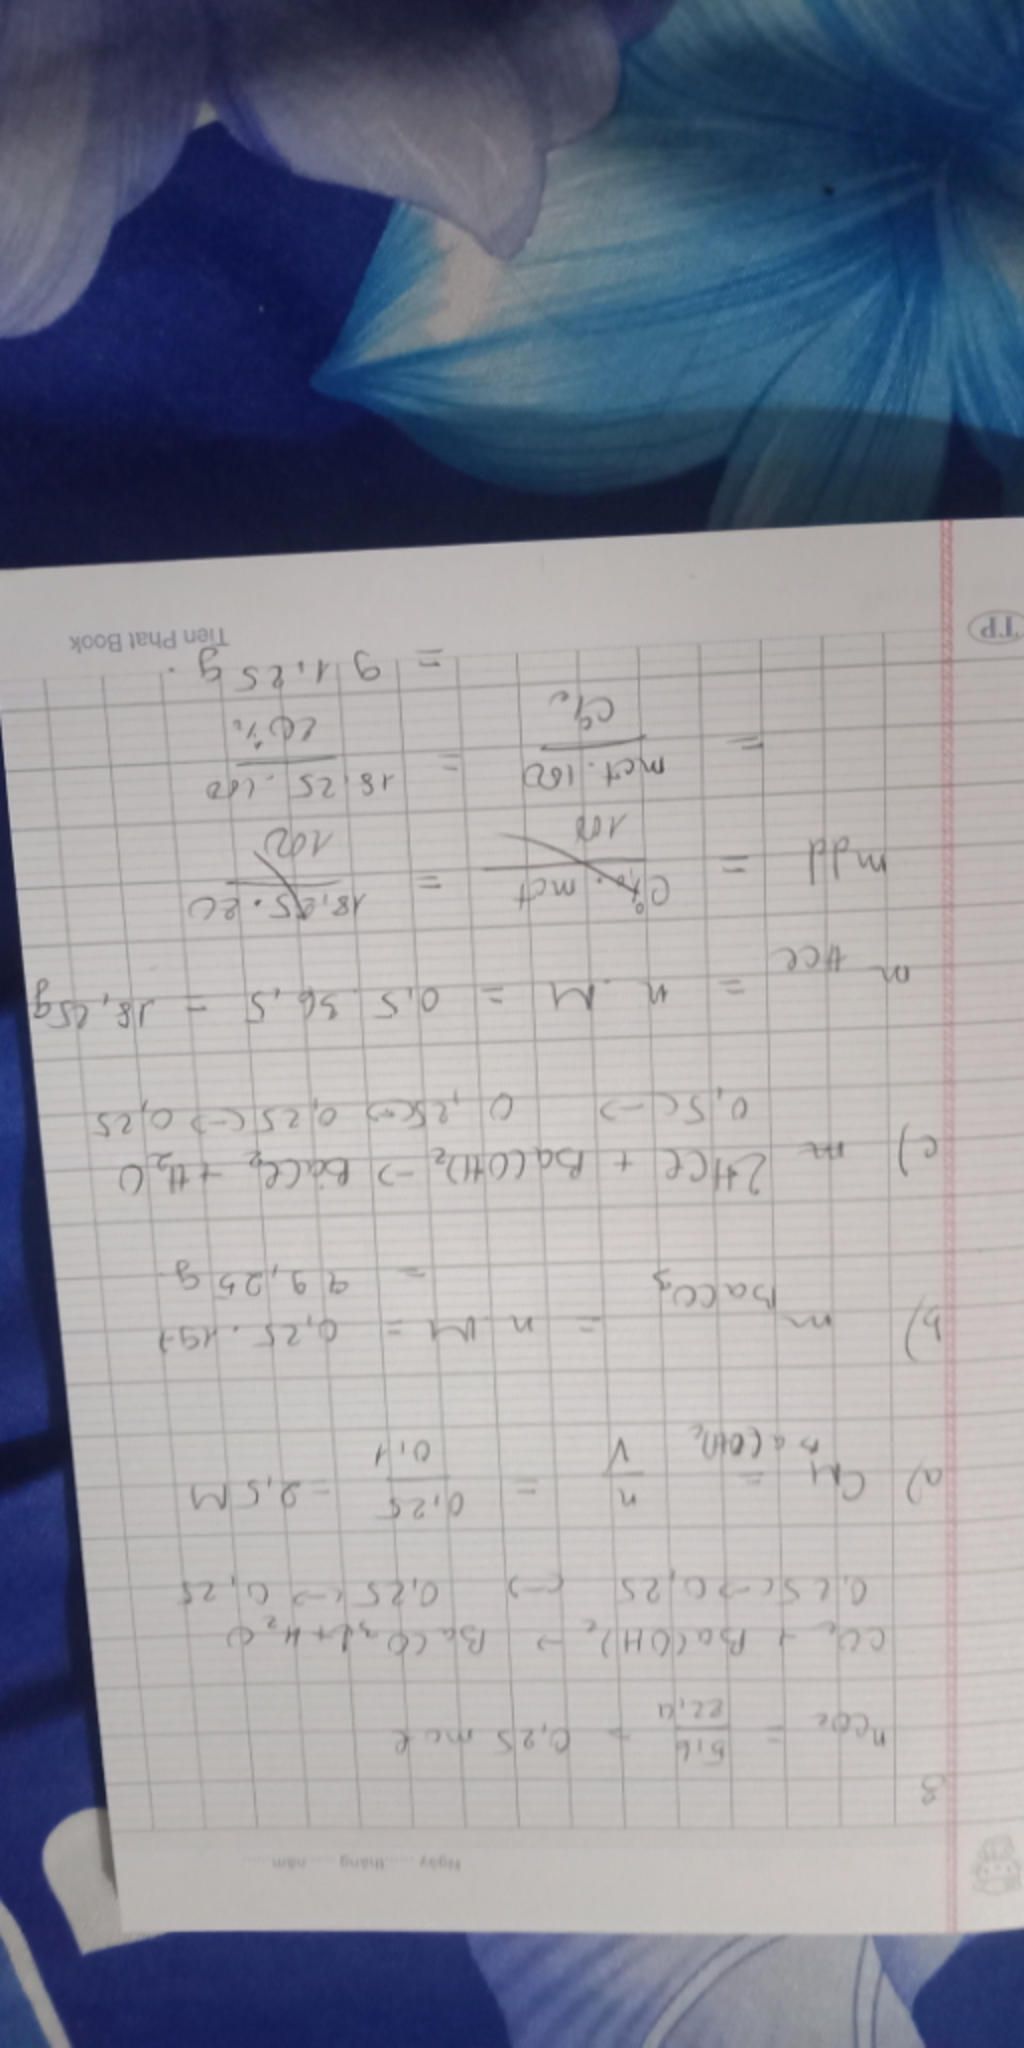 Ngày ...... tháng ...... năm ......
8
nCO₂ = 5,6 / 22,4 = 0,25 mol
CO₂ + Ba(OH)₂ → BaCO₃↓ + H₂O
0,25 <-> 0,25 <-> 0,25 <-> 0,25
a) CM Ba(OH)₂ = n / V = 0,25 / 0,1 = 2,5 M
b) m BaCO₃ = n . M = 0,25 . 197
= 49,25 g
c) 2HCl + Ba(OH)₂ -> BaCl₂ + H₂O
0,5 <-> 0,25 <-> 0,25 <-> 0,25
m HCl = n . M = 0,5 . 36,5 = 18,25g
mdd = C% . mct / 100 = 18,25 . 20 / 100
= mct . 100 / C% = 18,25 . 100 / 20%
= 91,25 g.
TP Tien Phat Book